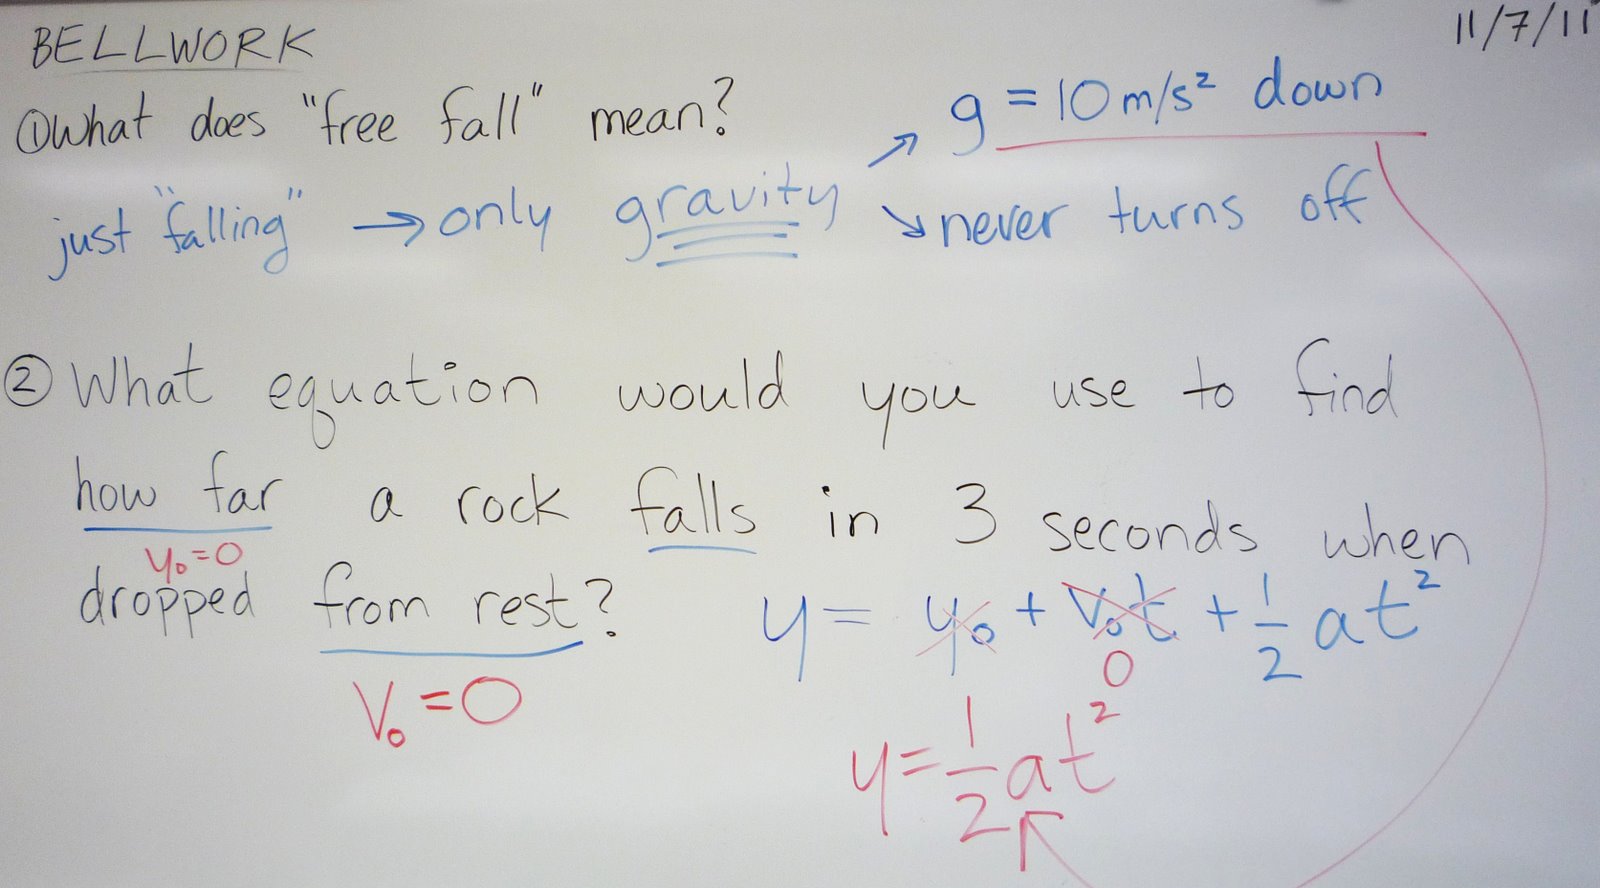 BELLWORK
11/7/11
① What does "free fall" mean?
g = 10 m/s² down
just "falling" → only gravity
never turns off
② What equation would you use to find
how far a rock falls in 3 seconds when
y₀=0
dropped from rest?
y = y₀ + v₀t + 1/2 at²
0
V₀ = 0
y = 1/2 at²